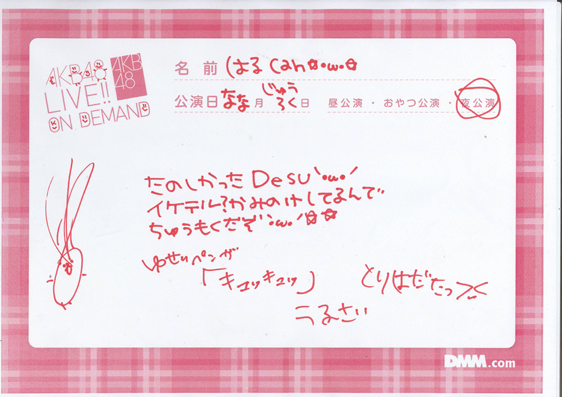 AKB48
LIVE!!
ON DEMAND
AKB
48
名前 はるcan✿.ω.✿
公演日 なな月じゅうろく日 昼公演・おやつ公演・夜公演
たのしかったDesu'・ω・'
イケテル?かみのけしてるんで
ちゅうもくだぞ'・ω・'✿✿
ゆせいペンが
「キュッキュッ」
うるさい
とりはだたつ><
DMM.com